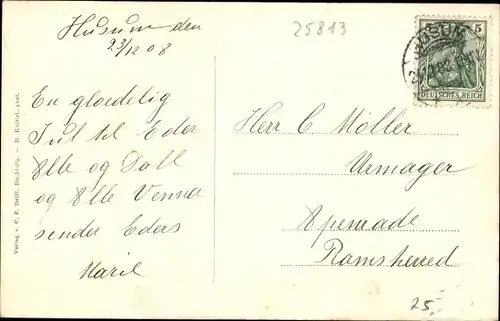 Husum den
23/12 08
25813
5
HUSUM
DEUTSCHES REICH
En glædelig
Jul til Eder
Alle og Dall
og Alle Venner
sender Eders
Marie
Herr C Möller
Urmager
Apenrade
Ramsherred
25.-
Verlag v. C. F. Delff, Buchhdlg.